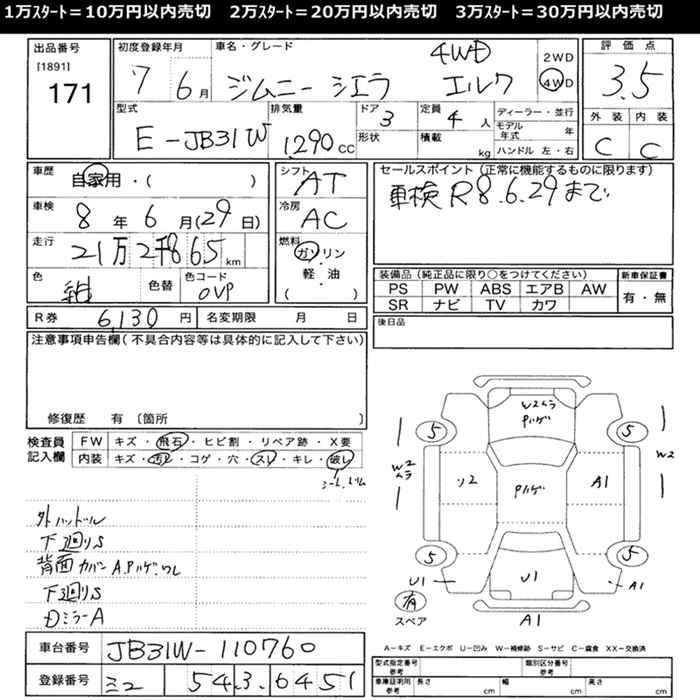 1万ｽﾀｰﾄ＝10万円以内売切　2万ｽﾀｰﾄ＝20万円以内売切　3万ｽﾀｰﾄ＝30万円以内売切
出品番号
[1891]
171
初度登録年月
7 6月
車名・グレード
4WD
ジムニー シエラ エルク
2WD
4WD
評価点
3.5
外装 内装
C C
型式
E-JB31W
排気量
1,290cc
ドア
3
形状
定員
4人
積載
kg
ディーラー・並行
モデル年式 年
ハンドル 左・右
車歴
自家用・( )
車検
8年6月(29日)
走行
21万2千865km
色
紺
色替
色コード
0VP
シフト
AT
冷房
AC
燃料
ガソリン・軽・油
( )
セールスポイント(正常に機能するものに限ります)
車検R8.6.29まで
装備品(純正品に限り○をつけてください)
PS PW ABS エアB AW
SR ナビ TV カワ
新車保証書
有・無
R券 6,130円
名変期限 月 日
後日品
注意事項申告欄(不具合内容等は具体的に記入して下さい)
修復歴 有 〔箇所
検査員記入欄
FW キズ・飛石・ヒビ割・リペア跡・X要
内装 キズ・汚レ・コゲ・穴・スレ・キレ・破レ
外ハンドル
下廻りS
背面カバーA.Pハゲ.ワレ
下廻りS
Dミラ-A
W2ムラ
Pハゲ
5 5
W2
ムラ
W2
ソ2
Pハゲ
A1
5 5
U1
U1
A1
有
スペア
A1
A-キズ E-エクボ U-凹み W-補修跡 S-サビ C-腐食 XX-交換済
車台番号 JB31W-110760
登録番号 ミ2 543.6451
型式指定番号
参考
類別区分番号
参考
車庫証明用
参考
長さ cm
幅 cm
高さ cm